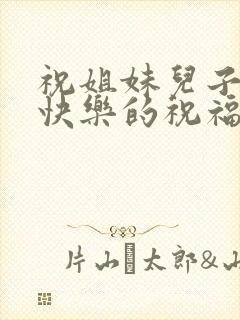 祝姐妹兒子
快樂的祝福
片山太郎&山